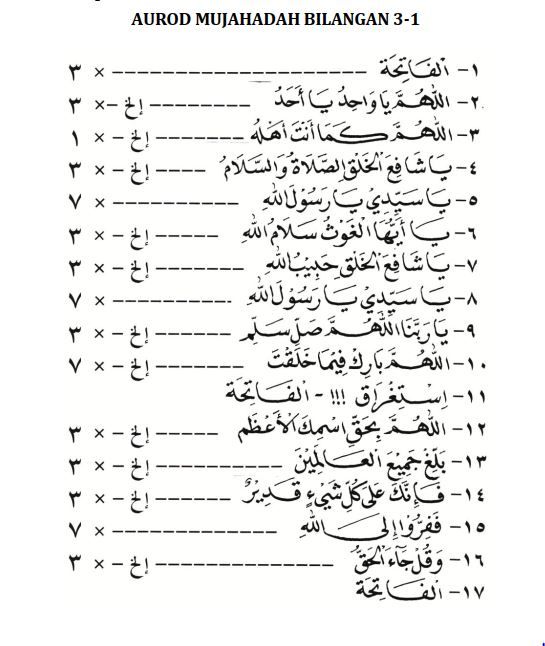 AUROD MUJAHADAH BILANGAN 3-1
١- اَلْفَاتِحَة ------------------------ × ٣
٢- اَللّٰهُمَّ يَا وَاحِدُ يَا أَحَدُ ---------- إلخ -× ٣
٣- اَللّٰهُمَّ كَمَا أَنْتَ أَهْلُهُ ---------- إلخ - × ١
٤- يَا شَافِعَ الْخَلْقِ الصَّلَاةُ وَالسَّلَامُ ------ إلخ - × ٣
٥- يَا سَيِّدِيْ يَا رَسُوْلَ اللهِ ------------ × ٧
٦- يَا أَيُّهَا الْغَوْثُ سَلَامُ اللهِ ------ إلخ - × ٣
٧- يَا شَافِعَ الْخَلْقِ حَبِيْبَ اللهِ -------- إلخ - × ٣
٨- يَا سَيِّدِيْ يَا رَسُوْلَ اللهِ ----------- × ٧
٩- يَا رَبَّنَا اللّٰهُمَّ صَلِّ سَلِّمْ -------- إلخ - × ٣
١٠- اَللّٰهُمَّ بَارِكْ فِيْمَا خَلَقْتَ -------- إلخ - × ٧
١١- اِسْتِغْرَاق !!! - اَلْفَاتِحَة
١٢- اَللّٰهُمَّ بِحَقِّ اسْمِكَ الْأَعْظَمِ ------ إلخ - × ٣
١٣- بَلِّغْ جَمِيْعَ الْعَالَمِيْنَ ------------ إلخ - × ٣
١٤- فَإِنَّكَ عَلَى كُلِّ شَيْءٍ قَدِيْرٌ ------- إلخ - × ٣
١٥- فَفِرُّوْا إِلَى اللهِ ---------------- × ٧
١٦- وَقُلْ جَآءَ الْحَقُّ ---------------- إلخ - × ٣
١٧- اَلْفَاتِحَة